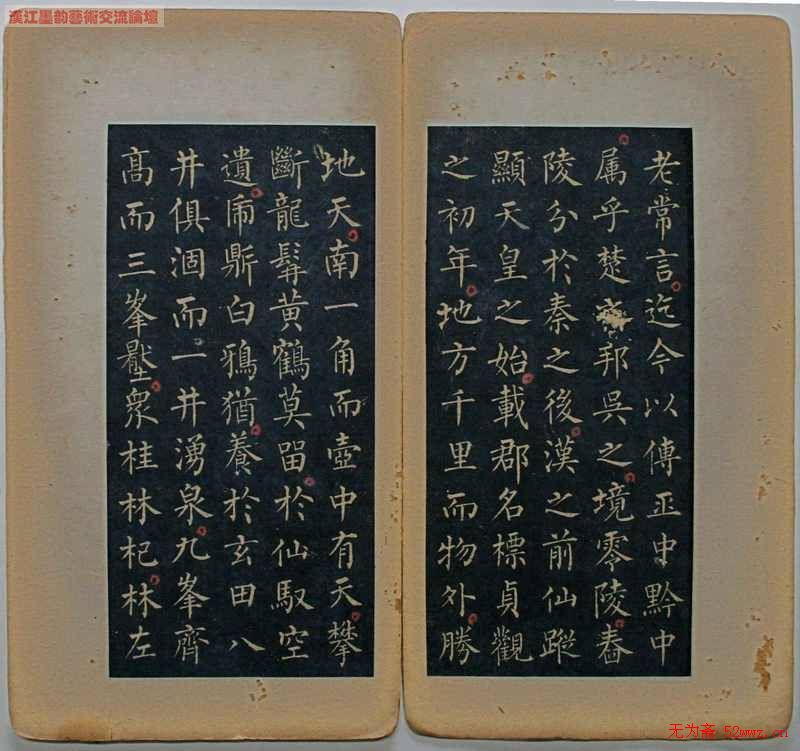 漢江墨韵藝術交流論壇
老常言迄今以傳中黔中
属乎楚邦吳之境零陵舂
陵分於秦之後漢之前仙蹤
顯天皇之始載郡名標貞觀
之初年地方千里而物外勝
地天南一角而壺中有天攀
斷龍髯黄鶴莫留於仙馭空
遺帝鼎白鴉猶養於玄田八
井俱涸而一井湧泉九峯齊
髙而三峯壓衆桂林杞林左
无为斋 52wwz.cn